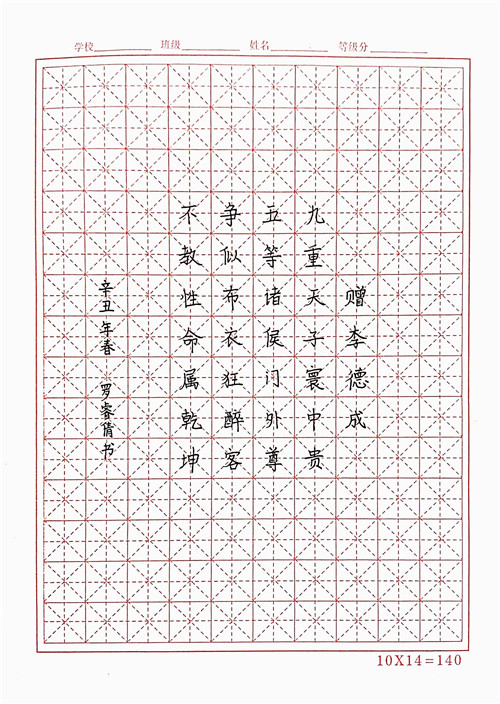 学校 班级 姓名 等级分
赠李德成
九重天子寰中贵
五等诸侯门外尊
争似布衣狂醉客
不教性命属乾坤
辛丑年春 罗睿倩书
10X14=140